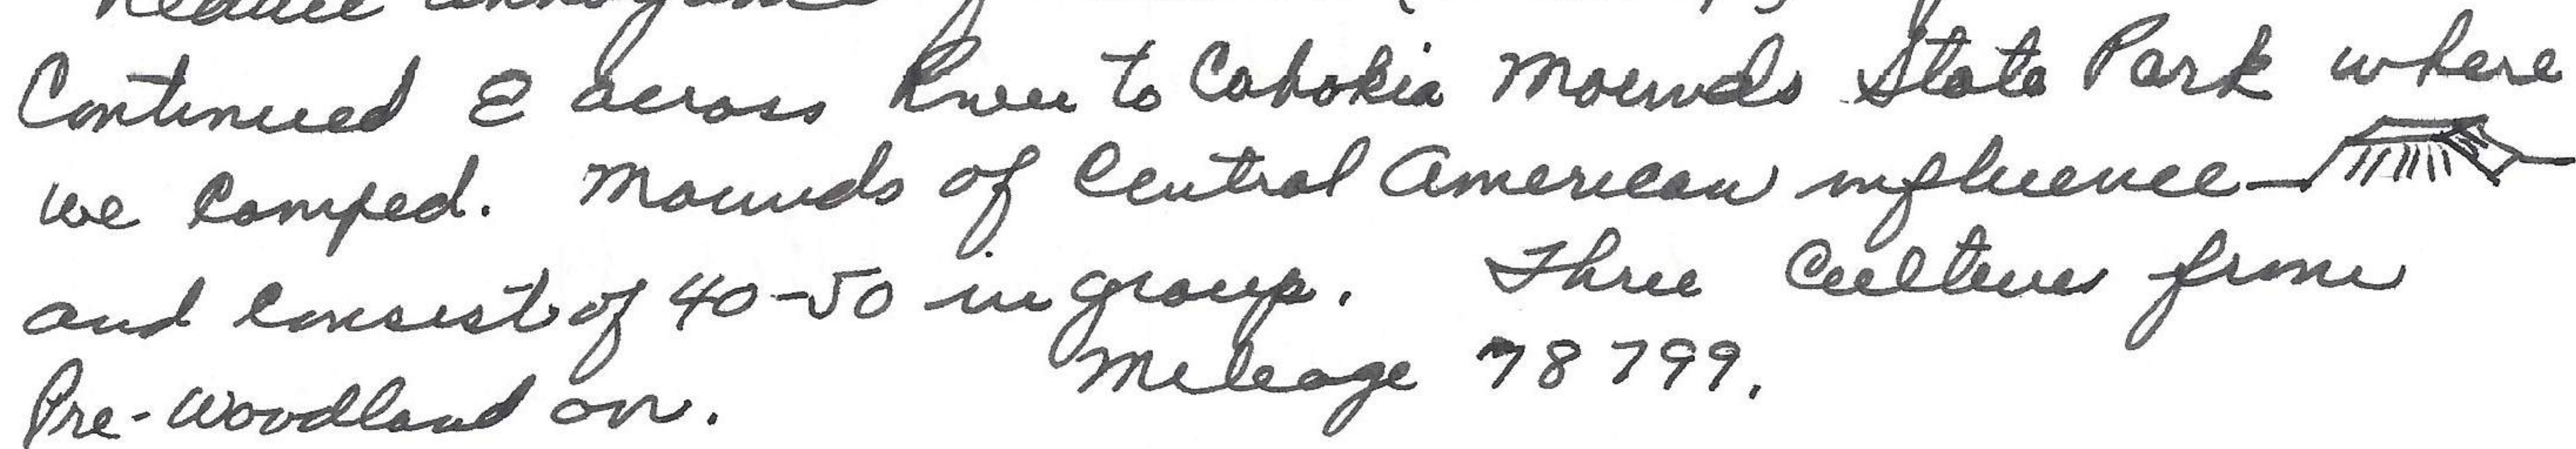 Continued E across River to Cahokia Mounds State Park where
we camped. Mounds of Central American influence
and consist of 40-50 in group. Three Cultures from
Pre-Woodland on. Mileage 78799.